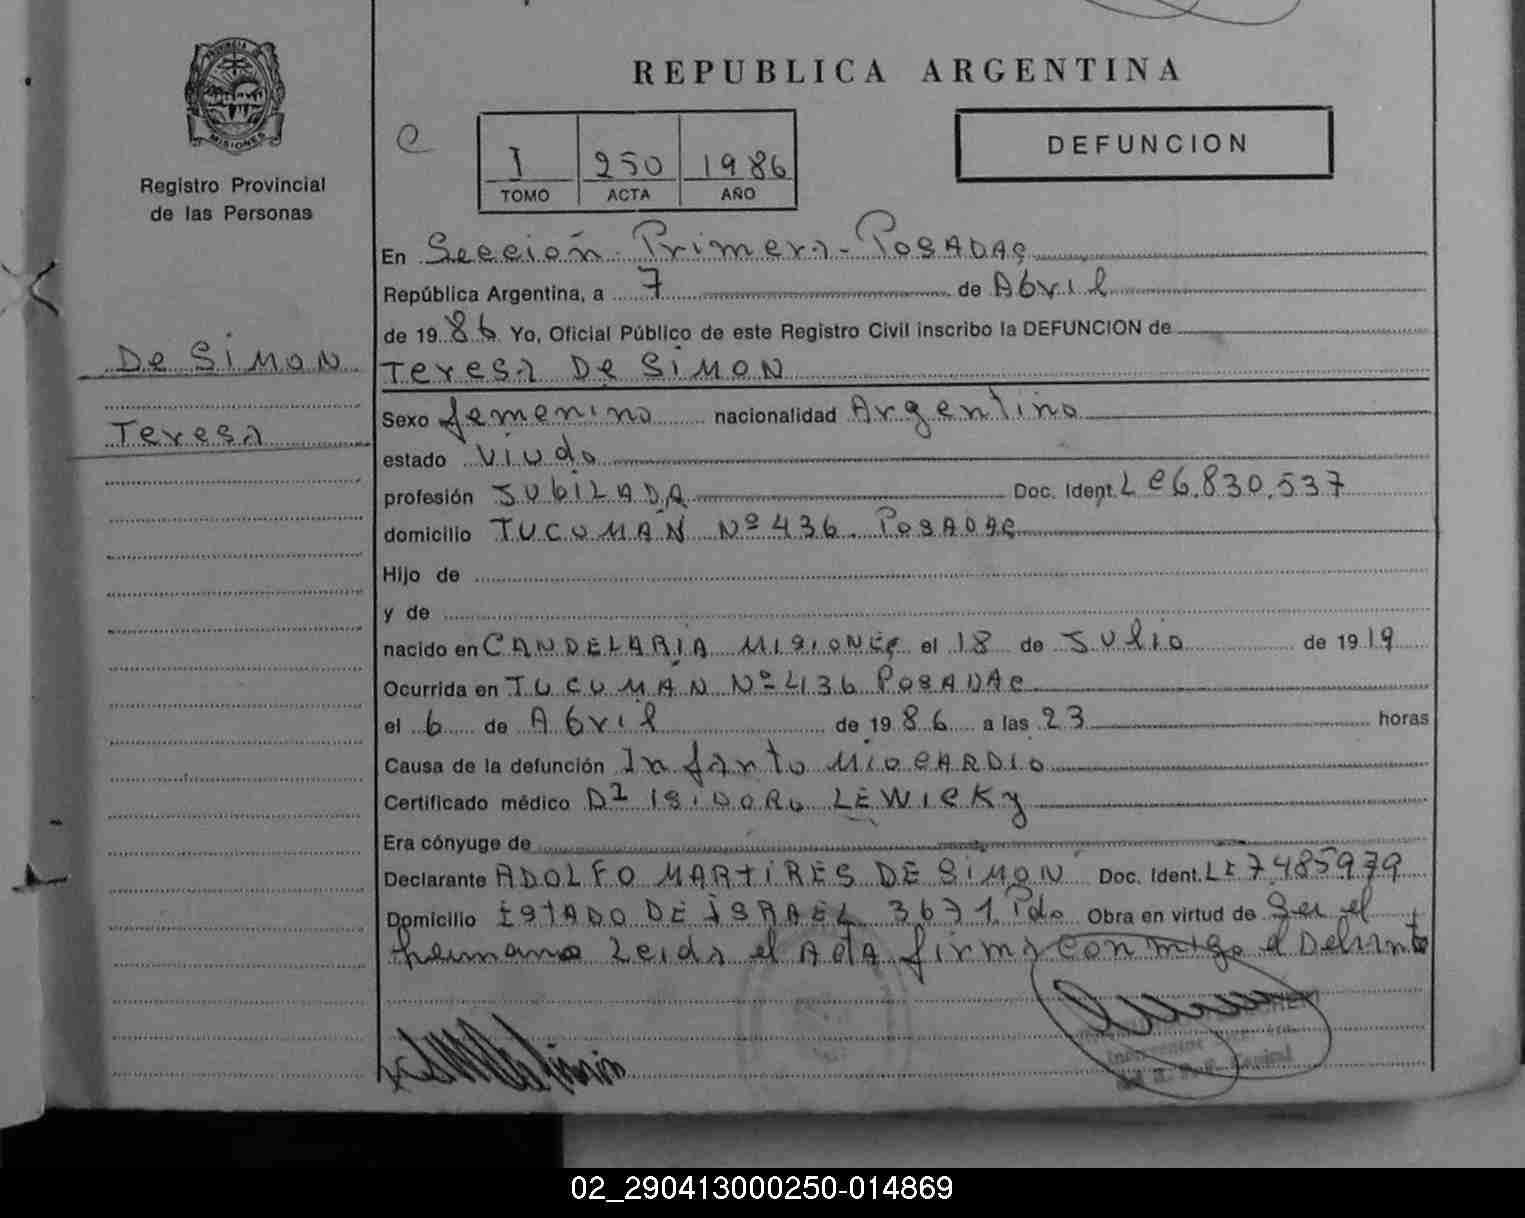 PROVINCIA DE
MISIONES
Registro Provincial
de las Personas
De SiMON
Teresa
REPUBLICA ARGENTINA
I 250 1986
TOMO ACTA AÑO
DEFUNCION
En Sección Primera - POSADAS
República Argentina, a 7 de Abril
de 1986 Yo, Oficial Público de este Registro Civil inscribo la DEFUNCION de
Teresa De SiMON
Sexo femenino nacionalidad Argentina
estado Viuda
profesión JUbiLADA Doc. Ident. Le 6.830.537
domicilio TUCUMÁN Nº 436. POSADAS
Hijo de
y de
nacido en CANDELARIA MISIONES el 18 de Julio de 1919
Ocurrida en TUCUMÁN Nº 436 POSADAS
el 6 de Abril de 1986 a las 23 horas
Causa de la defunción Infarto MiOCARDIO
Certificado médico Dr ISIDORO LEWICKY
Era cónyuge de
Declarante ADOLFO MARTIRES DE SiMON Doc. Ident. LE 7.485979
Domicilio ESTADO DE ISRAEL 3671 Pdas Obra en virtud de Ser el
hermano Leida el ActA firma conmigo el
02_290413000250-014869